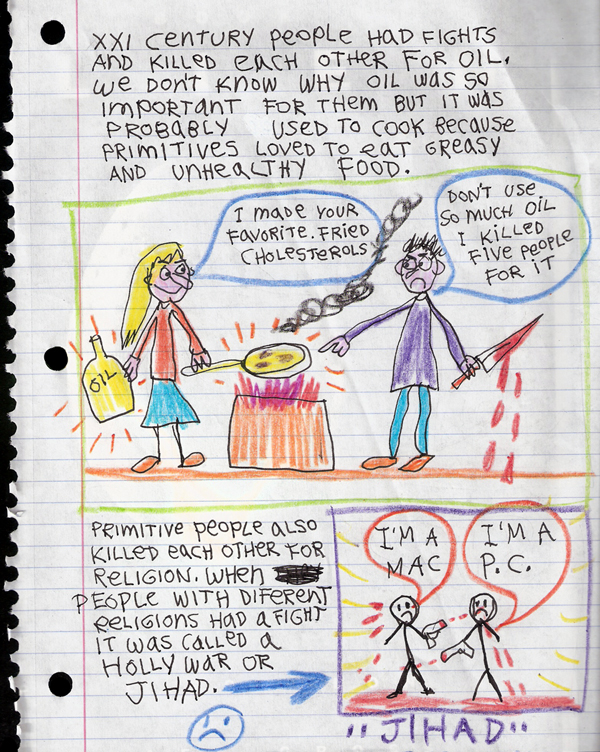 XXI CENTURY PEOPLE HAD FIGHTS
AND KILLED EACH OTHER FOR OIL.
WE DON'T KNOW WHY OIL WAS SO
IMPORTANT FOR THEM BUT IT WAS
PROBABLY USED TO COOK BECAUSE
PRIMITIVES LOVED TO EAT GREASY
AND UNHEALTHY FOOD.
I MADE YOUR
FAVORITE. FRIED
CHOLESTEROLS
DON'T USE
SO MUCH OIL
I KILLED
FIVE PEOPLE
FOR IT
OIL
PRIMITIVE PEOPLE ALSO
KILLED EACH OTHER FOR
RELIGION. WHEN
PEOPLE WITH DIFERENT
RELIGIONS HAD A FIGHT
IT WAS CALLED A
HOLLY WAR OR
JIHAD.
I'M A
MAC
I'M A
P.C.
"JIHAD"